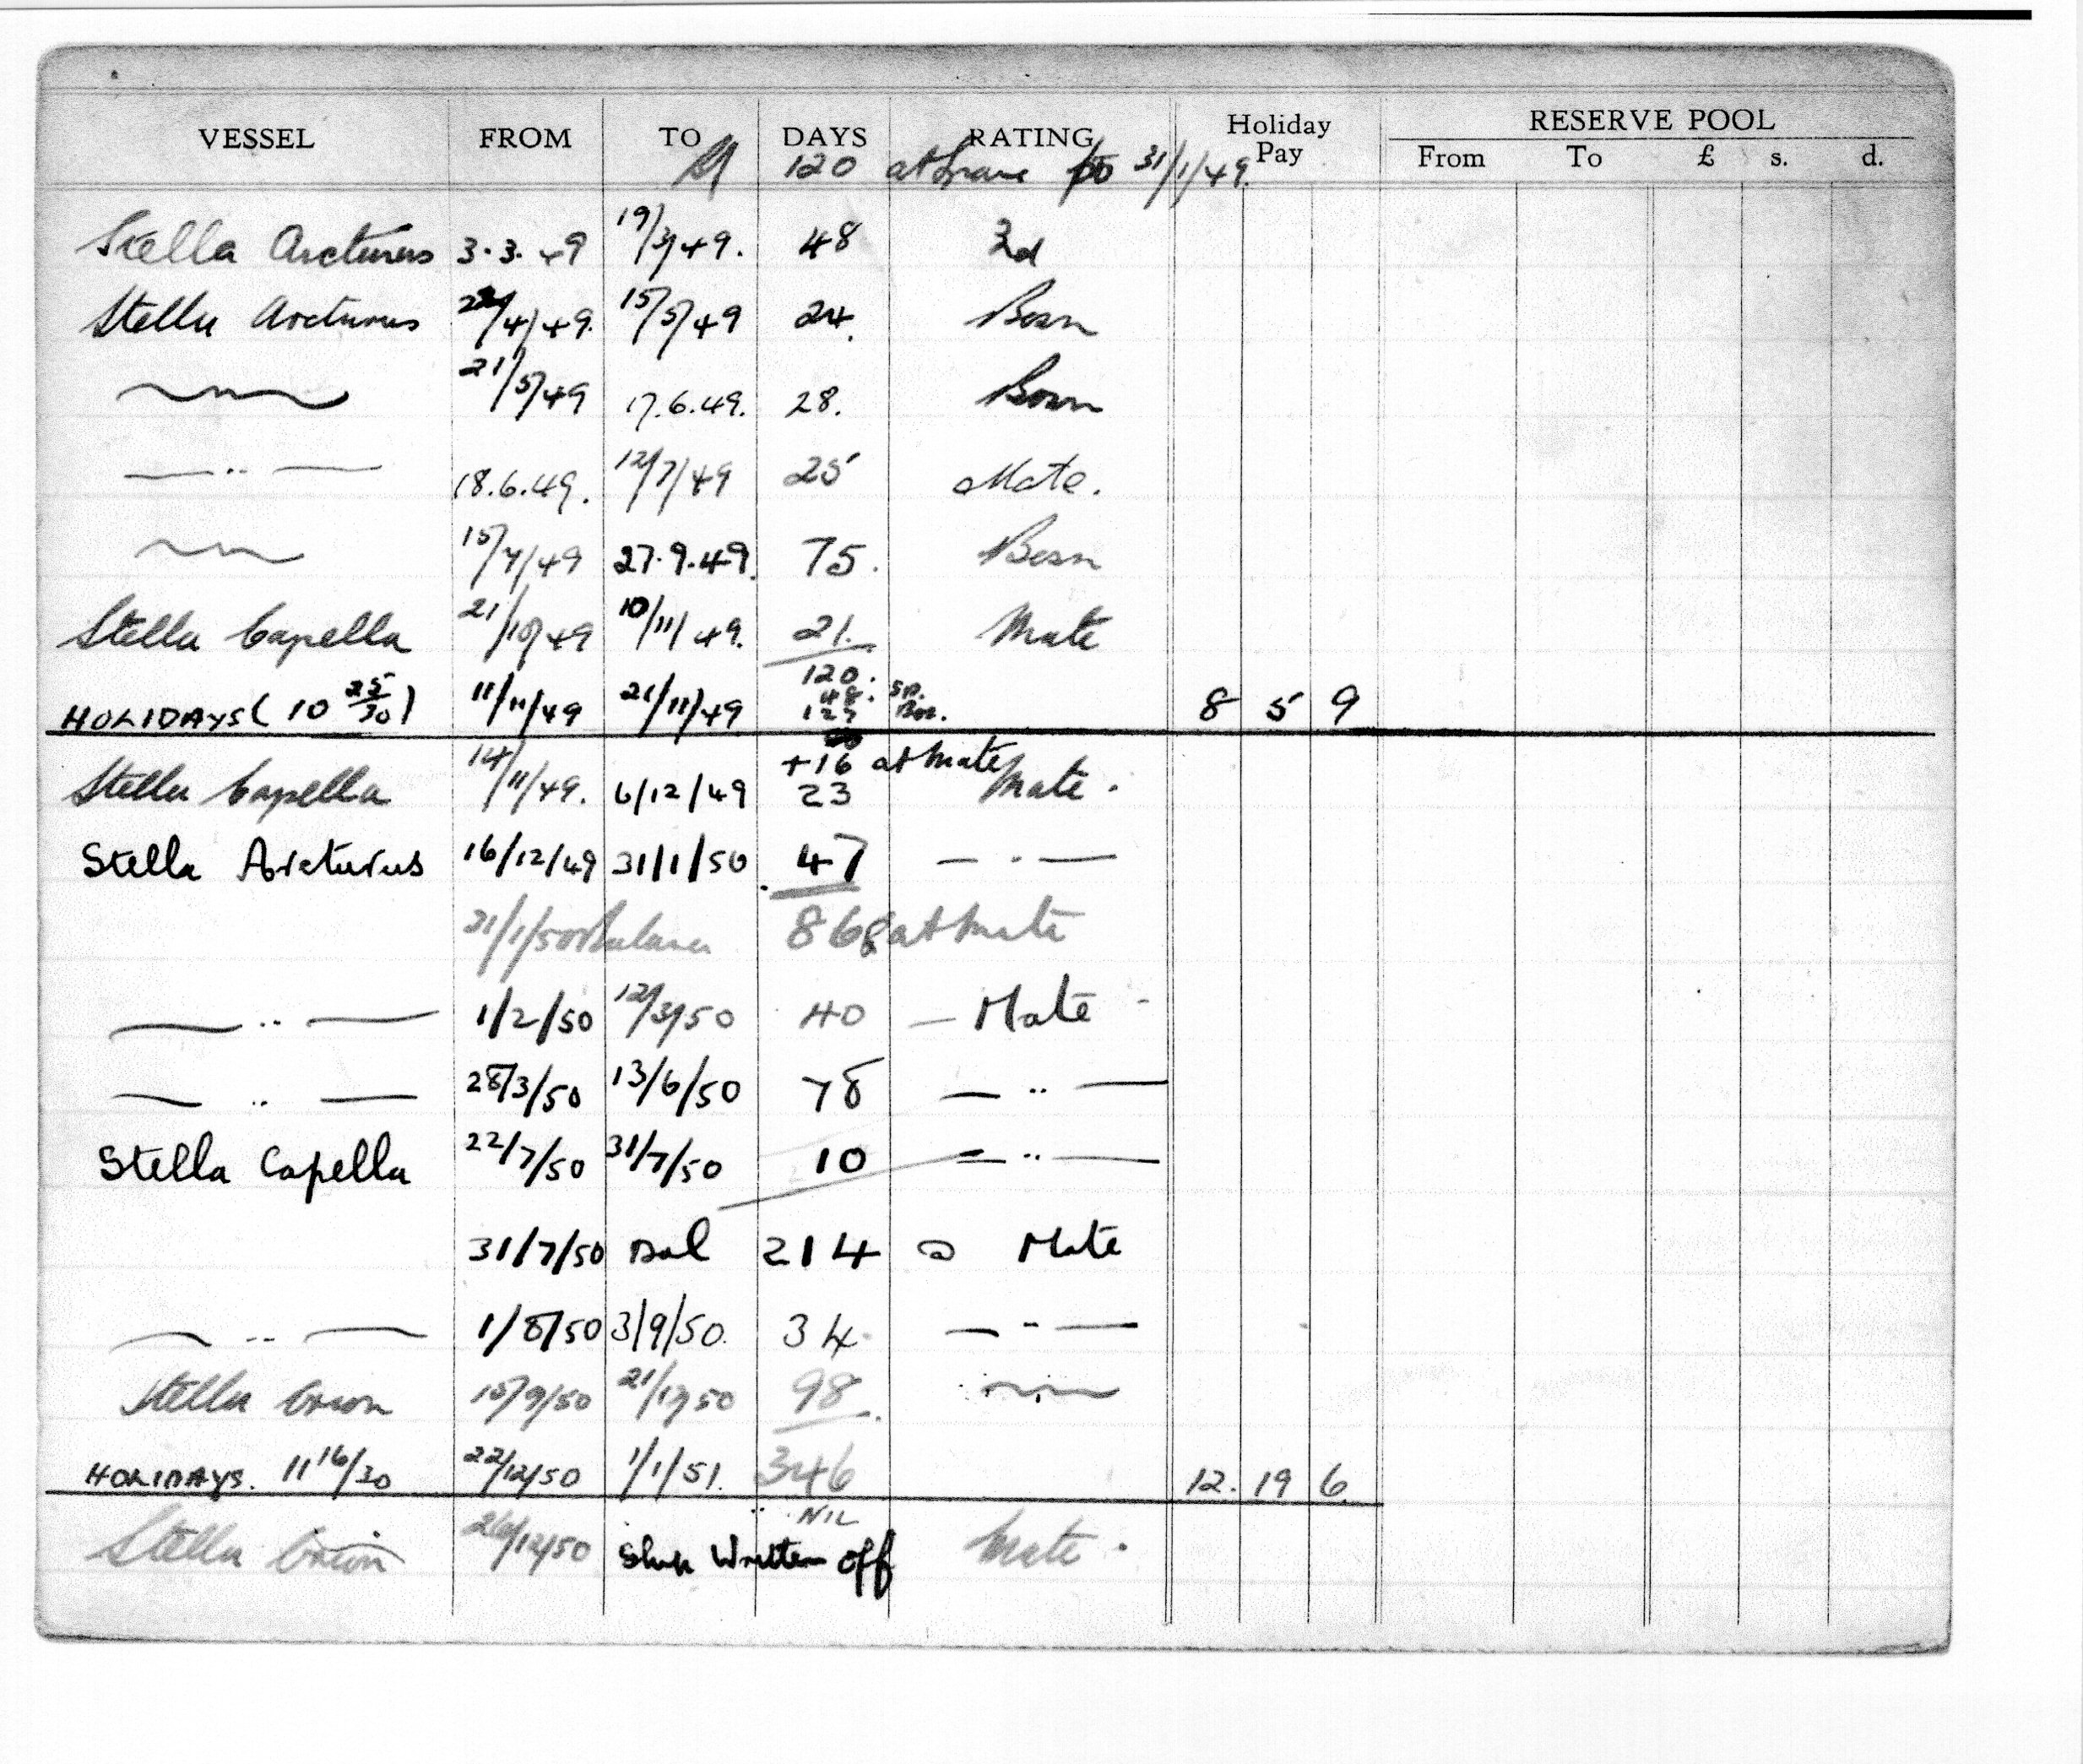 VESSEL FROM TO DAYS RATING Holiday Pay RESERVE POOL
From To £ s. d.
120 at 31/1/49.
Stella Arcturus 3.3.49 19/3/49. 48
Stella Arcturus 22/4/49. 15/5/49 24. Bosn
21/5/49 17.6.49. 28. Bosn
— .. — 18.6.49. 12/7/49 25 Mate.
15/7/49 27.9.49. 75. Bosn
Stella Capella 21/10/49 10/11/49. 21. Mate
120.
48.
HOLIDAYS (10 25/30) 11/11/49 21/11/49 127 Bos. 8 5 9
+16 at mate
Stella Capella 14/11/49. 6/12/49 23 Mate.
Stella Arcturus 16/12/49 31/1/50 47 — . —
31/1/50 Balance 86 at Mate
— .. — 1/2/50 12/3/50 40 — Mate -
— .. — 28/3/50 13/6/50 78 — .. —
Stella Capella 22/7/50 31/7/50 10 — .. —
31/7/50 Bal 214 @ Mate
— .. — 1/8/50 3/9/50. 34 — .. —
Stella Orion 15/9/50 21/12/50 98.
HOLIDAYS. 11 16/30 22/12/50 1/1/51. 346 12. 19 6.
NIL
Stella Orion 26/12/50 Ship Written off Mate.